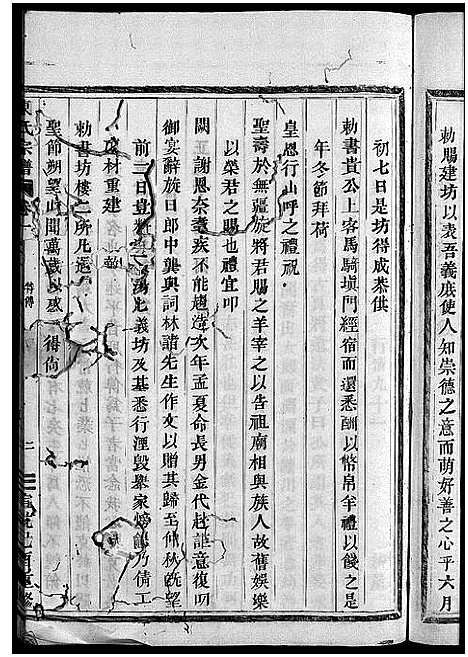 勅賜建坊以表吾義庻使人知崇德之意而萌好善之心乎六月
初七日是坊得成恭供
勅書貴公上客馬騎塡門經宿而還悉酬以幣帛羊禮以餞之時
年冬節拜荷
皇恩行山呼之禮祝
聖壽於無疆旋將君賜之羊宰之以告祖廟相與族人故舊娛樂
以榮君之賜也禮宜叩
闕 謝恩奈 疾不能趨造次年孟夏命長男金代赴 意復叨
御宴辭旋日郎中龔與詞林諸先生作文以贈其歸至仲秋旣望
前一日 義坊及基悉行湮毀舉家 乃倩工
材重建
勅書坊樓二所凡遇
聖節朔望山聞萬歲以 得尙
氏宗譜
二